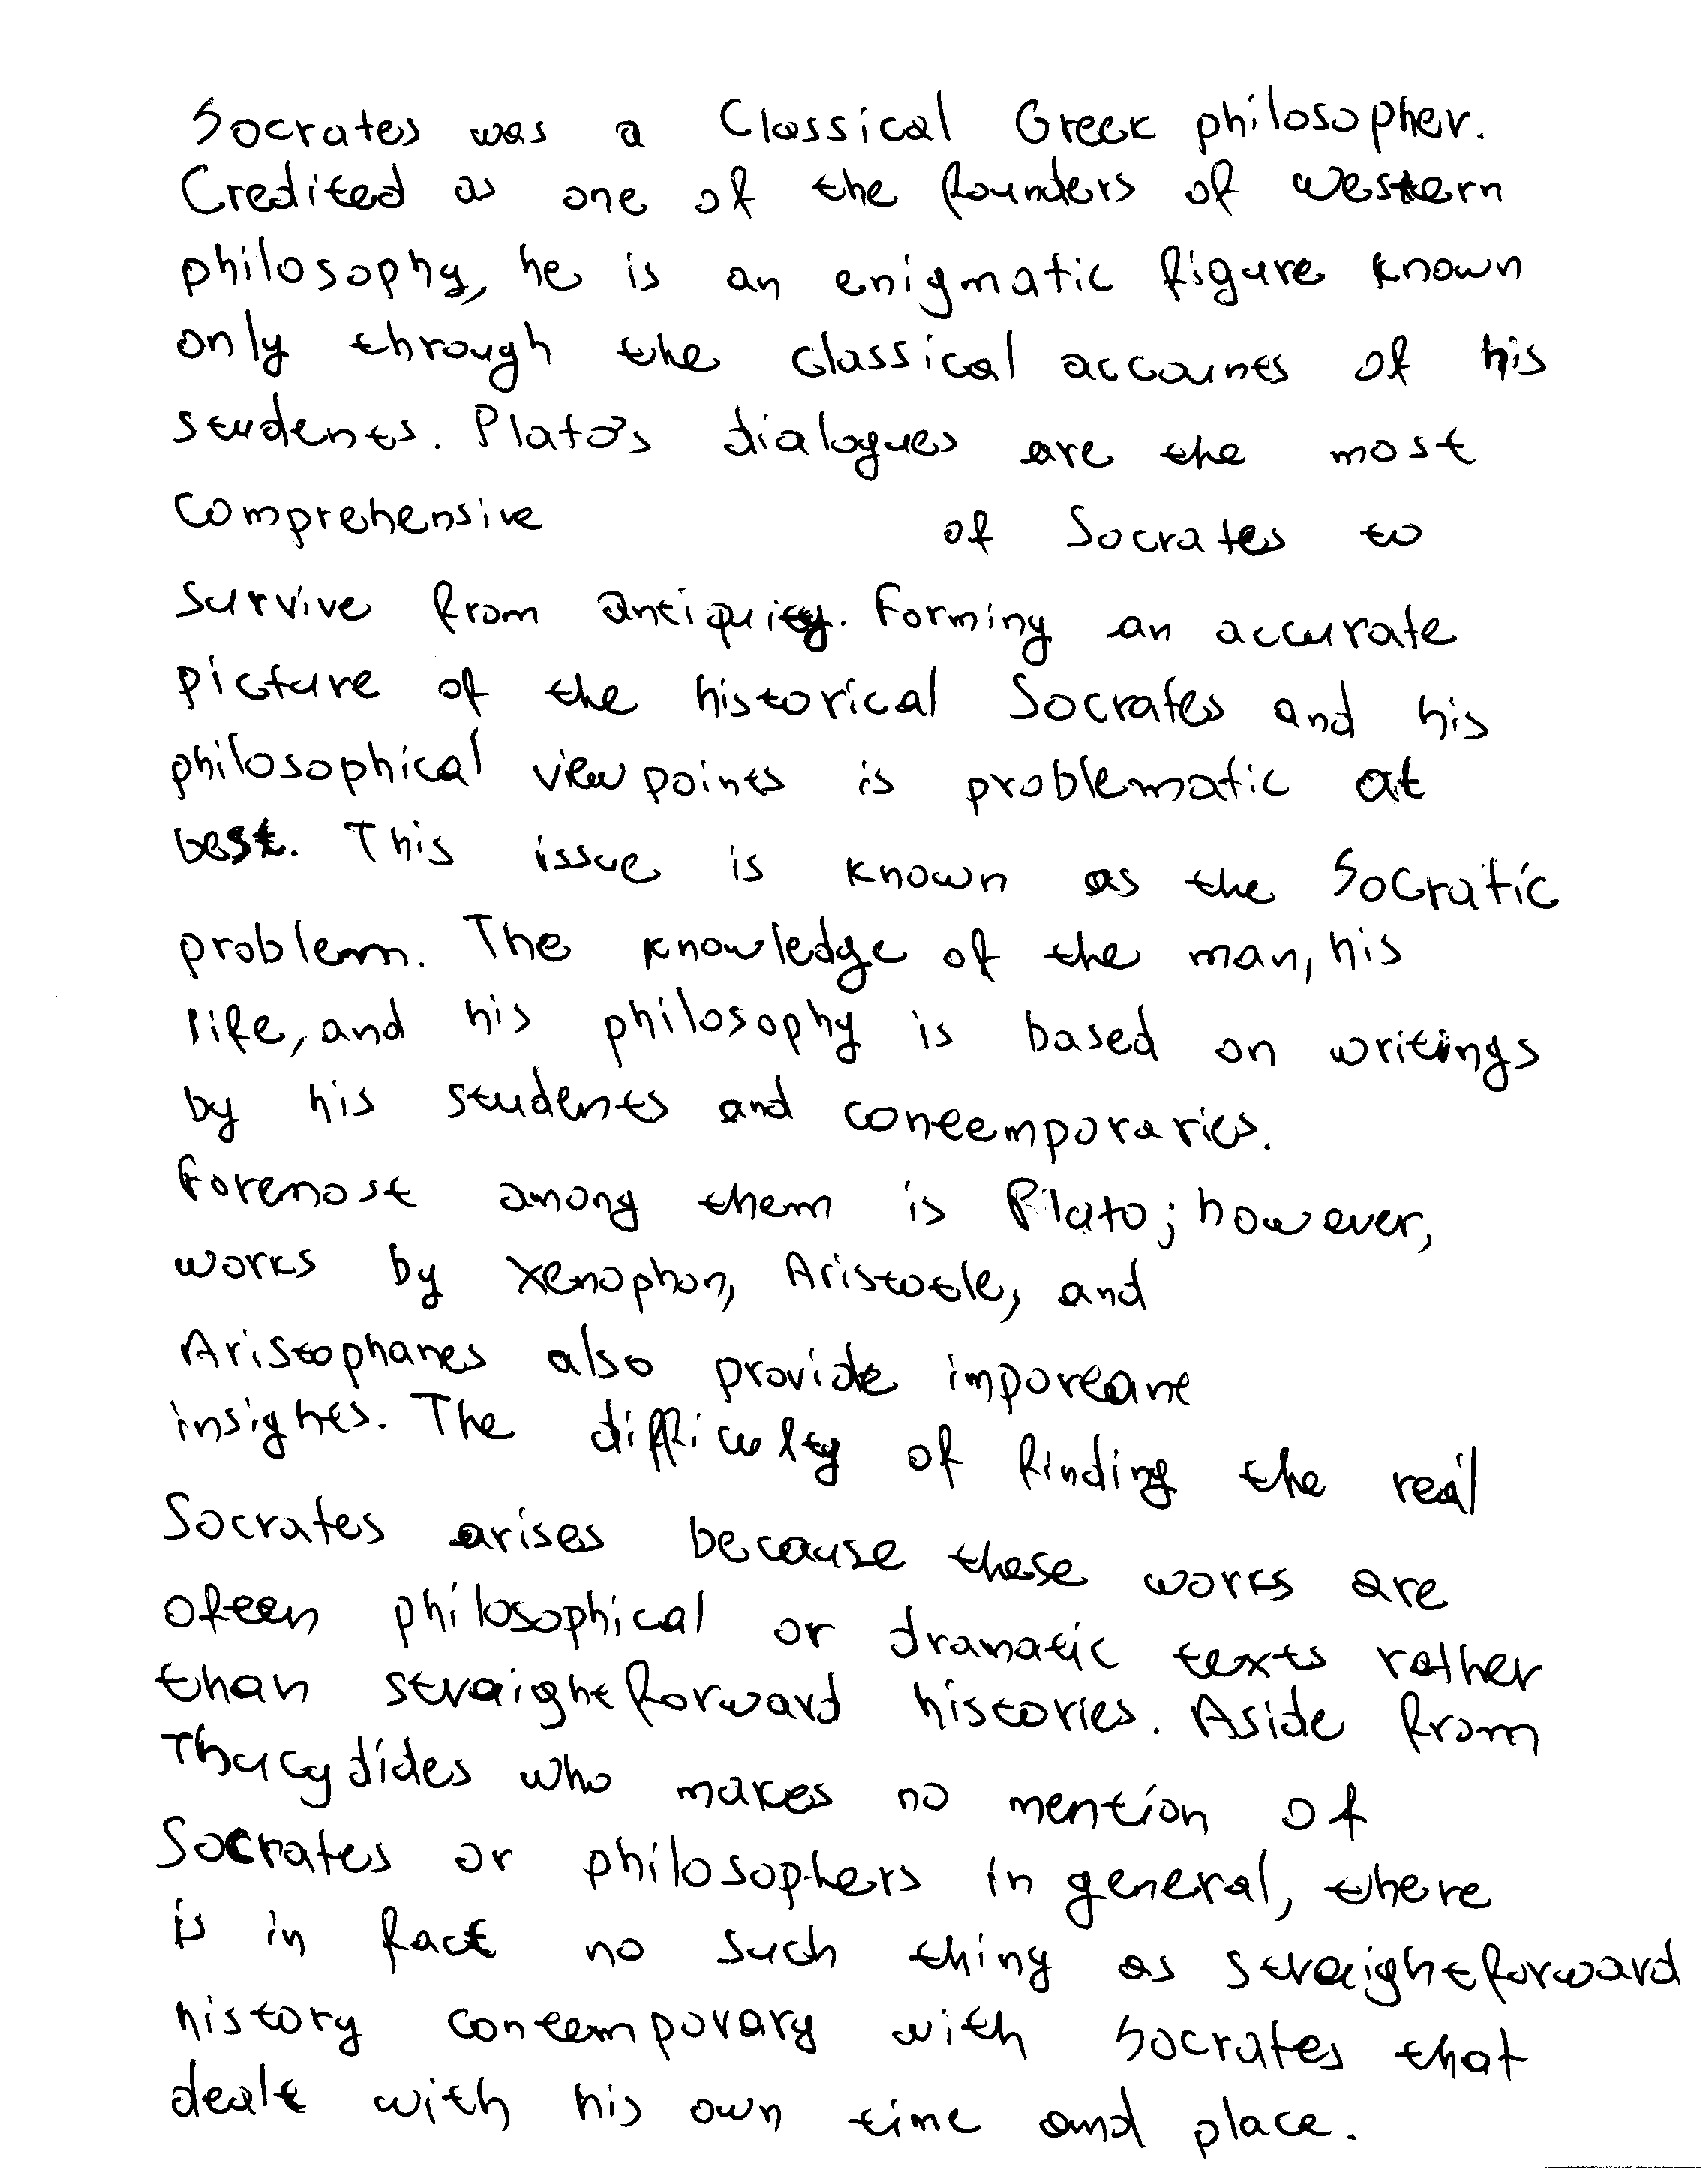 Socrates was a Classical Greek philosopher.
Credited as one of the founders of western
philosophy, he is an enigmatic figure known
only through the classical accounts of his
students. Plato's dialogues are the most
comprehensive of Socrates to
survive from antiquity. Forming an accurate
picture of the historical Socrates and his
philosophical viewpoints is problematic at
best. This issue is known as the Socratic
problem. The knowledge of the man, his
life, and his philosophy is based on writings
by his students and contemporaries.
Foremost among them is Plato; however,
works by Xenophon, Aristotle, and
Aristophanes also provide important
insights. The difficulty of finding the real
Socrates arises because these works are
often philosophical or dramatic texts rather
than straightforward histories. Aside from
Thucydides who makes no mention of
Socrates or philosophers in general, there
is in fact no such thing as straightforward
history contemporary with Socrates that
dealt with his own time and place.